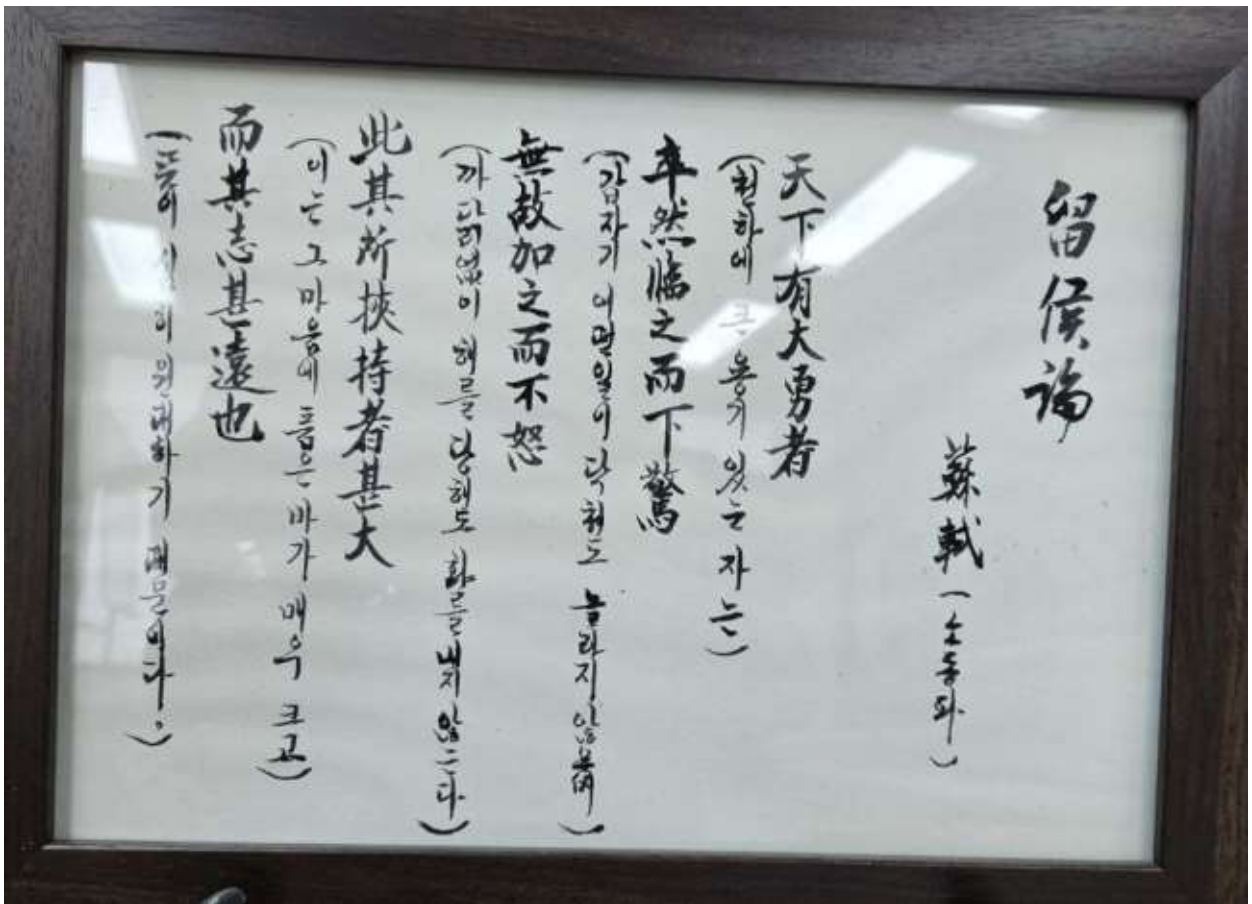 留侯論
蘇軾 (소동파)
天下有大勇者
(천하에 큰 용기 있는 자는)
卒然臨之而下驚
(갑자기 어떤일이 닥쳐도 놀라지 않으며)
無故加之而不怒
(까닭없이 해를 당해도 화를 내지 않는다)
此其所挾持者甚大
(이는 그 마음에 품은 바가 매우 크고)
而其志甚遠也
(뜻이 원대하기 때문이다.)